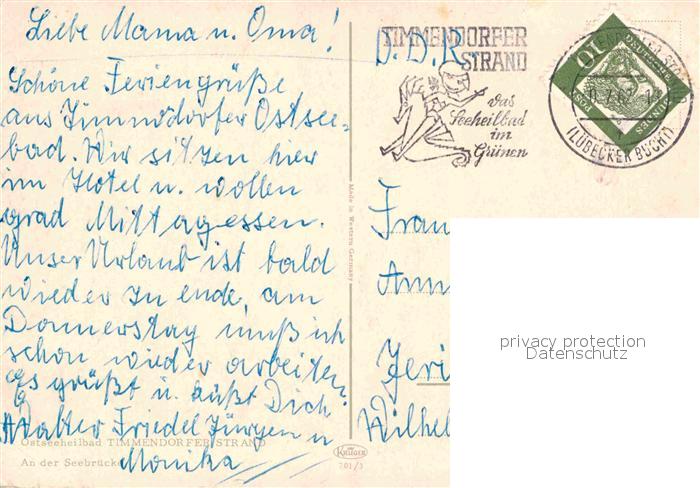 Liebe Mama u. Oma!
Schöne Feriengrüße
aus Timmdorfer Ostsee-
bad. Wir sitzen hier
im Hotel u. wollen
grad Mittagessen.
Unser Urlaub ist bald
wieder zu ende, am
Donnerstag muß ich
schon wieder arbeiten.
Es grüßt u. küßt Dich
Walter Friedel Jürgen u
Monika
Ostseeheilbad TIMMENDORFER STRAND
An der Seebrücke
Made in Western Germany
KRÜGER
701/3
D.D.R
TIMMENDORFER
STRAND
das
Seeheilbad
im
Grünen
10
DEUTSCHE
(LÜBECKER BUCHT)
Frau
Ann
Jeri
Wilhel
privacy protection
Datenschutz